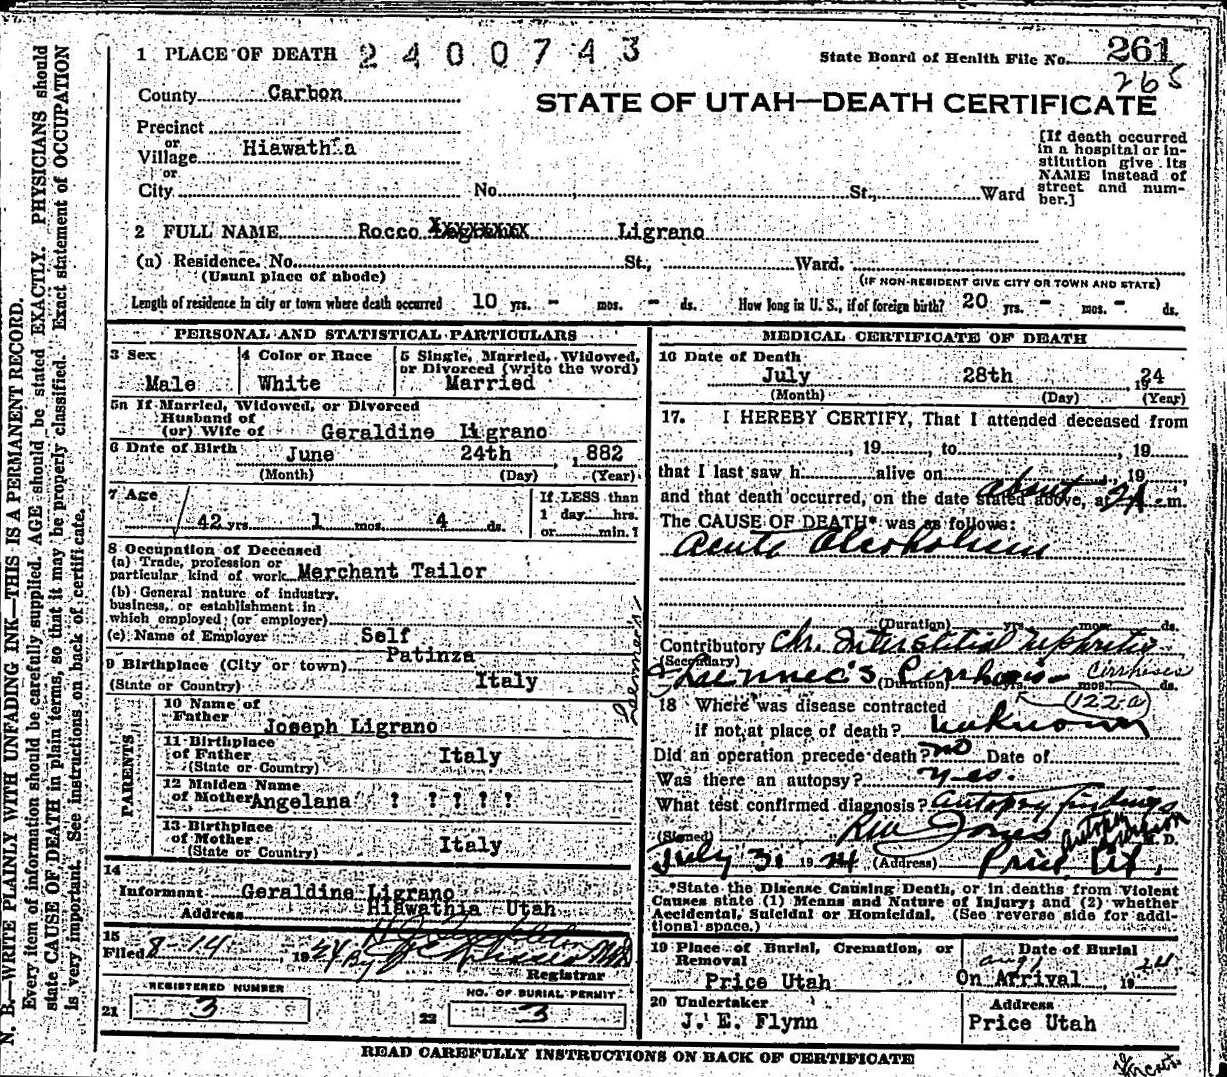 1 PLACE OF DEATH 2400743
State Board of Health File No. 261
265
County Carbon
STATE OF UTAH—DEATH CERTIFICATE
Precinct
or
Village Hiawathia
or
City No. St., Ward
[If death occurred
in a hospital or in-
stitution give its
NAME instead of
street and num-
ber.]
2 FULL NAME Rocco Ligrano
(a) Residence. No. St., Ward.
(Usual place of abode) (IF NON-RESIDENT GIVE CITY OR TOWN AND STATE)
Length of residence in city or town where death occurred 10 yrs. - mos. - ds. How long in U. S., if of foreign birth? 20 yrs. - mos. - ds.
PERSONAL AND STATISTICAL PARTICULARS
3 Sex
Male
4 Color or Race
White
5 Single, Married, Widowed,
or Divorced (write the word)
Married
5a If Married, Widowed, or Divorced
Husband of
(or) Wife of Geraldine Ligrano
6 Date of Birth June 24th, 1882
(Month) (Day) (Year)
7 Age
42 yrs. 1 mos. 4 ds.
If LESS than
1 day hrs.
or min.?
8 Occupation of Deceased
(a) Trade, profession or
particular kind of work Merchant Tailor
(b) General nature of industry,
business, or establishment in
which employed (or employer)
(c) Name of Employer Self
9 Birthplace (City or town) Patinza
(State or Country) Italy
PARENTS
10 Name of
Father Joseph Ligrano
11 Birthplace
of Father Italy
(State or Country)
12 Maiden Name
of Mother Angelana ? ? ? ? ?
13 Birthplace
of Mother Italy
(State or Country)
14
Informant Geraldine Ligrano
Address Hiawathia Utah
15
Filed 8-14, 1924 By
Registrar
REGISTERED NUMBER
21 3
NO. OF BURIAL PERMIT
22 3
MEDICAL CERTIFICATE OF DEATH
16 Date of Death
July 28th 1924
(Month) (Day) (Year)
17. I HEREBY CERTIFY, That I attended deceased from
, 19 , to , 19
that I last saw h alive on , 19
and that death occurred, on the date stated above, at about 2 A m.
The CAUSE OF DEATH* was as follows:
Acute Alcoholism
(Duration) yrs. mos. ds.
Contributory Ch. Interstitial Nephritis
(Secondary)
Laennec's Cirrhosis - Cirrhosis
(Duration) yrs. mos. ds.
(122-a)
18 Where was disease contracted
if not at place of death? unknown
Did an operation precede death? no Date of
Was there an autopsy? yes.
What test confirmed diagnosis? Autopsy findings
(Signed) Jones M. D.
July 31 1924 (Address) Price, Ut.
*State the Disease Causing Death, or in deaths from Violent
Causes state (1) Means and Nature of Injury; and (2) whether
Accidental, Suicidal or Homicidal. (See reverse side for addi-
tional space.)
19 Place of Burial, Cremation, or
Removal
Price Utah
Date of Burial
Aug 1
On Arrival, 1924
20 Undertaker
J. E. Flynn
Address
Price Utah
READ CAREFULLY INSTRUCTIONS ON BACK OF CERTIFICATE
N. B.—WRITE PLAINLY WITH UNFADING INK—THIS IS A PERMANENT RECORD.
Every item of information should be carefully supplied. AGE should be stated EXACTLY. PHYSICIANS should
state CAUSE OF DEATH in plain terms, so that it may be properly classified. Exact statement of OCCUPATION
is very important. See instructions on back of certificate.